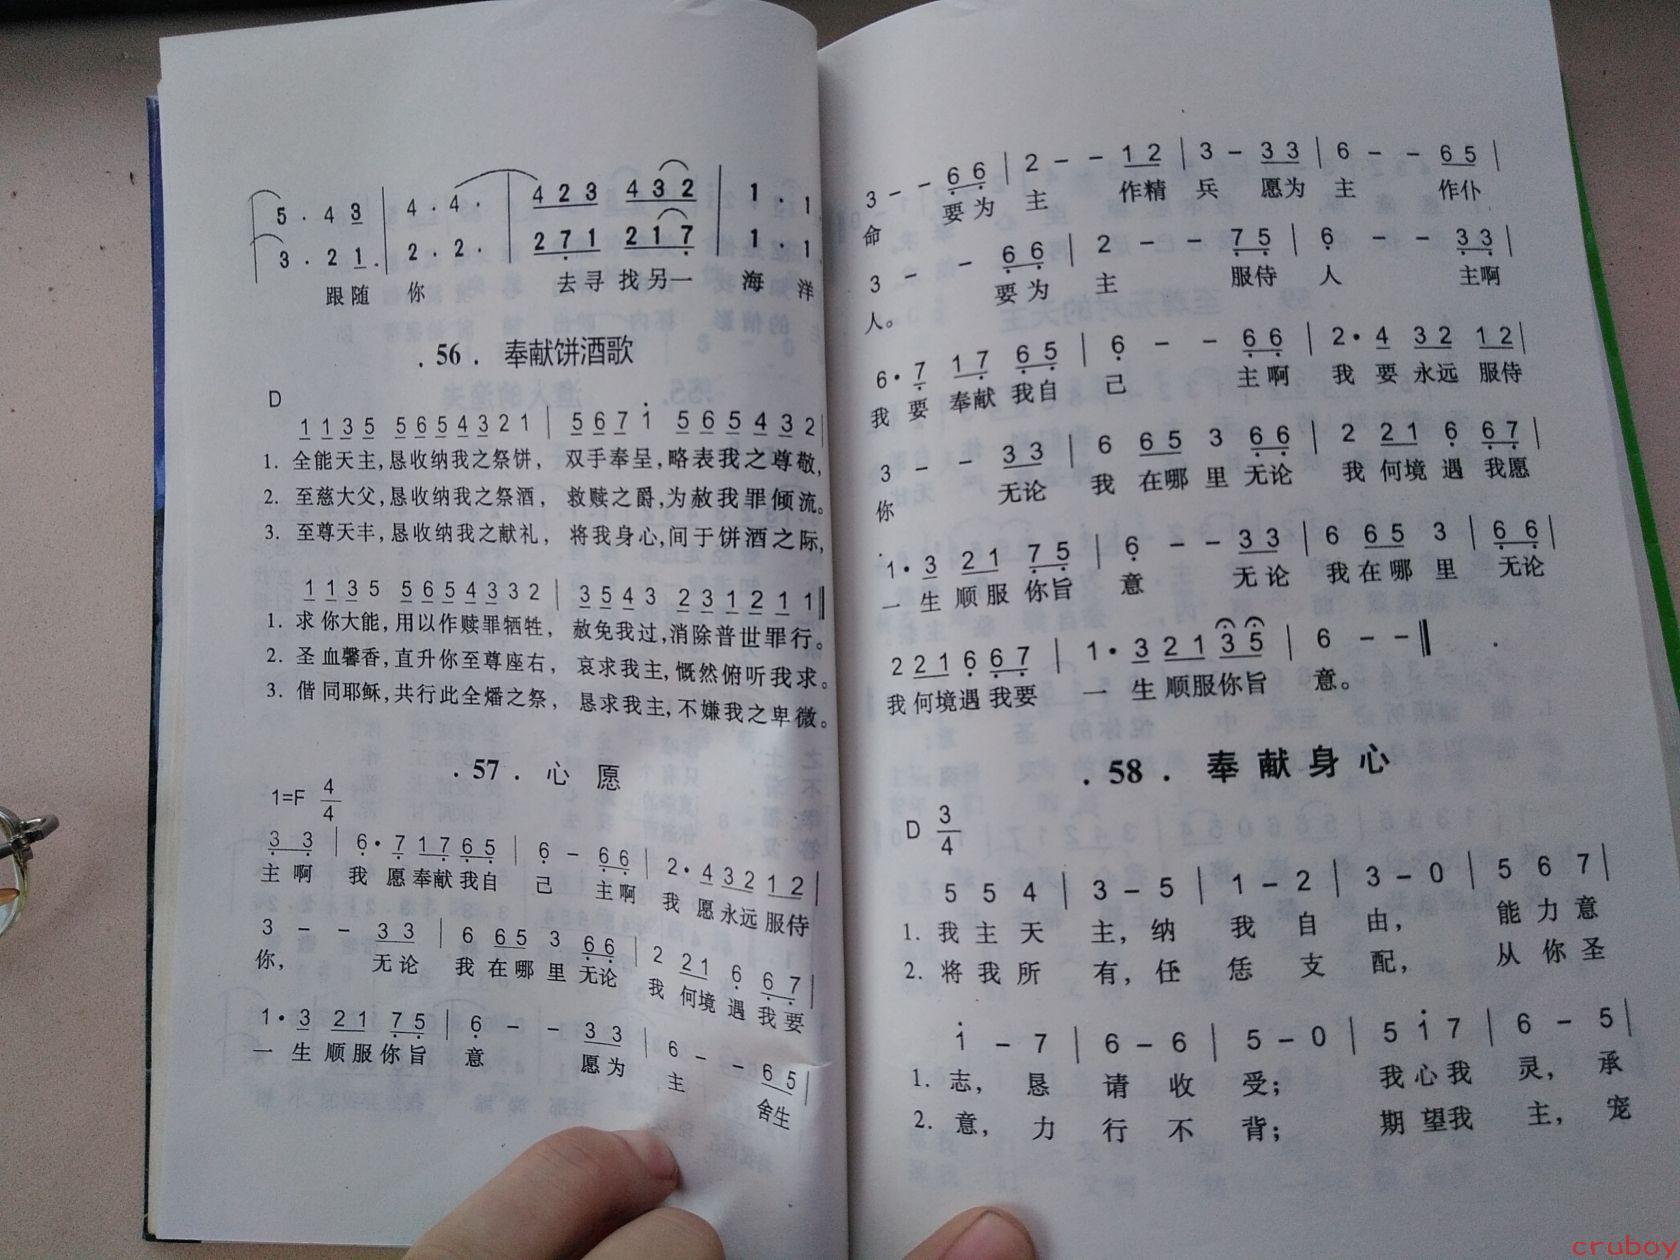 5 . 4 3 | 4 . 4 . | 4 2 3 4 3 2 | 1 . 1
3 . 2 1 . | 2 . 2 . | 2 7 1 2 1 7 | 1 . 1
跟随 你 去寻找另一 海 洋
. 56 . 奉献饼酒歌
D
1 1 3 5 5 6 5 4 3 2 1 | 5 6 7 1 5 6 5 4 3 2 |
1. 全能天主,恳收纳我之祭饼, 双手奉呈,略表我之尊敬,
2. 至慈大父,恳收纳我之祭酒, 救赎之爵,为赦我罪倾流。
3. 至尊天丰,恳收纳我之献礼, 将我身心,间于饼酒之际,
1 1 3 5 5 6 5 4 3 3 2 | 3 5 4 3 2 3 1 2 1 1 ‖
1. 求你大能,用以作赎罪牺牲, 赦免我过,消除普世罪行。
2. 圣血馨香,直升你至尊座右, 哀求我主,慨然俯听我求。
3. 偕同耶稣,共行此全燔之祭, 恳求我主,不嫌我之卑微。
. 57 . 心 愿
1=F 4/4
3 3 | 6 · 7 1 7 6 5 | 6 – 6 6 | 2 · 4 3 2 1 2 |
主啊 我 愿奉献我自 己 主啊 我 愿永远服侍
3 – – 3 3 | 6 6 5 3 6 6 | 2 2 1 6 6 7 |
你, 无论 我在哪里无论 我 何境 遇 我要
1 · 3 2 1 7 5 | 6 – – 3 3 | 6 – – 6 5 |
一 生 顺服你旨 意 愿为 主 舍生
3 – – 6 6 | 2 – – 1 2 | 3 – 3 3 | 6 – – 6 5 |
命 要为 主 作精 兵 愿为 主 作仆
3 – – 6 6 | 2 – – 7 5 | 6 – – 3 3 |
人。 要为 主 服侍 人 主啊
6 · 7 1 7 6 5 | 6 – – 6 6 | 2 · 4 3 2 1 2 |
我 要 奉献 我自 己 主啊 我 要 永远 服侍
3 – – 3 3 | 6 6 5 3 6 6 | 2 2 1 6 6 7 |
你 无论 我 在哪 里 无论 我 何境 遇 我愿
1 · 3 2 1 7 5 | 6 – – 3 3 | 6 6 5 3 | 6 6 |
一 生 顺服 你旨 意 无论 我在哪 里 无论
2 2 1 6 6 7 | 1 · 3 2 1 3 5 | 6 – – ‖
我何境遇我要 一 生 顺服你旨 意。
. 58 . 奉献身心
D 3/4
5 5 4 | 3 – 5 | 1 – 2 | 3 – 0 | 5 6 7 |
1. 我主天 主,纳 我 自 由, 能力意
2. 将我所 有,任 恁 支 配, 从你圣
1 – 7 | 6 – 6 | 5 – 0 | 5 1 7 | 6 – 5 |
1. 志, 恳 请 收 受; 我心我 灵, 承
2. 意, 力 行 不 背; 期望我 主, 宠
cruboy